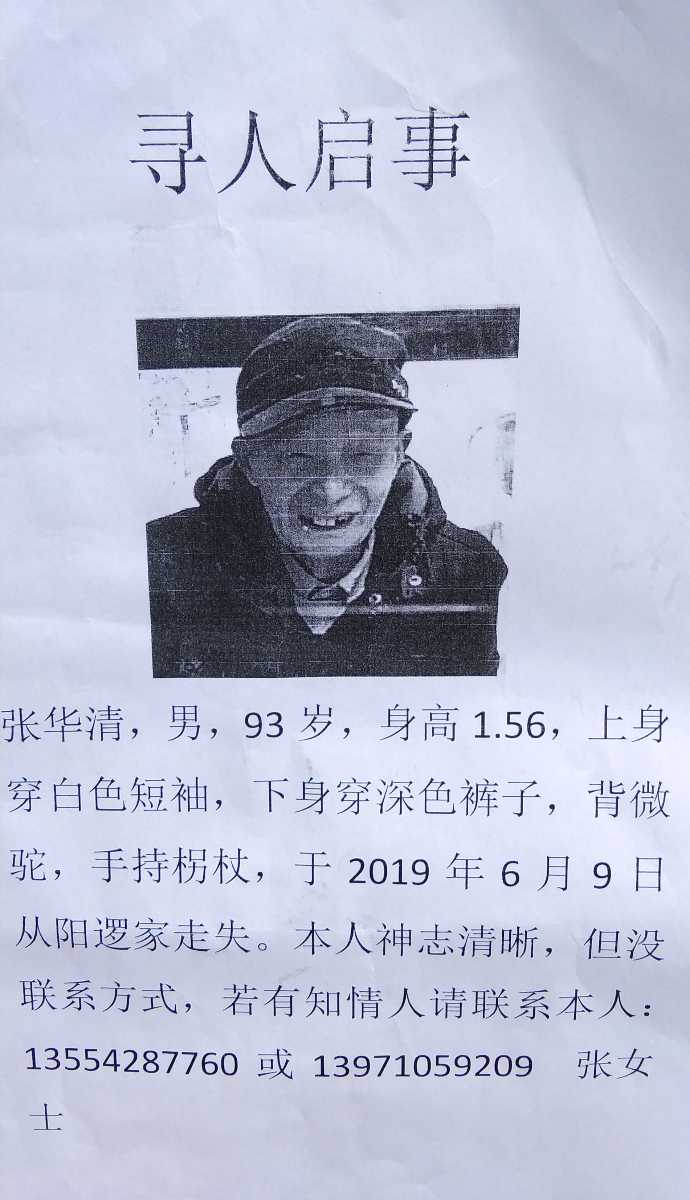 寻人启事
张华清，男，93岁，身高1.56，上身
穿白色短袖，下身穿深色裤子，背微
驼，手持拐杖，于 2019 年 6 月 9 日
从阳逻家走失。本人神志清晰，但没
联系方式，若有知情人请联系本人：
13554287760 或 13971059209 张女
士